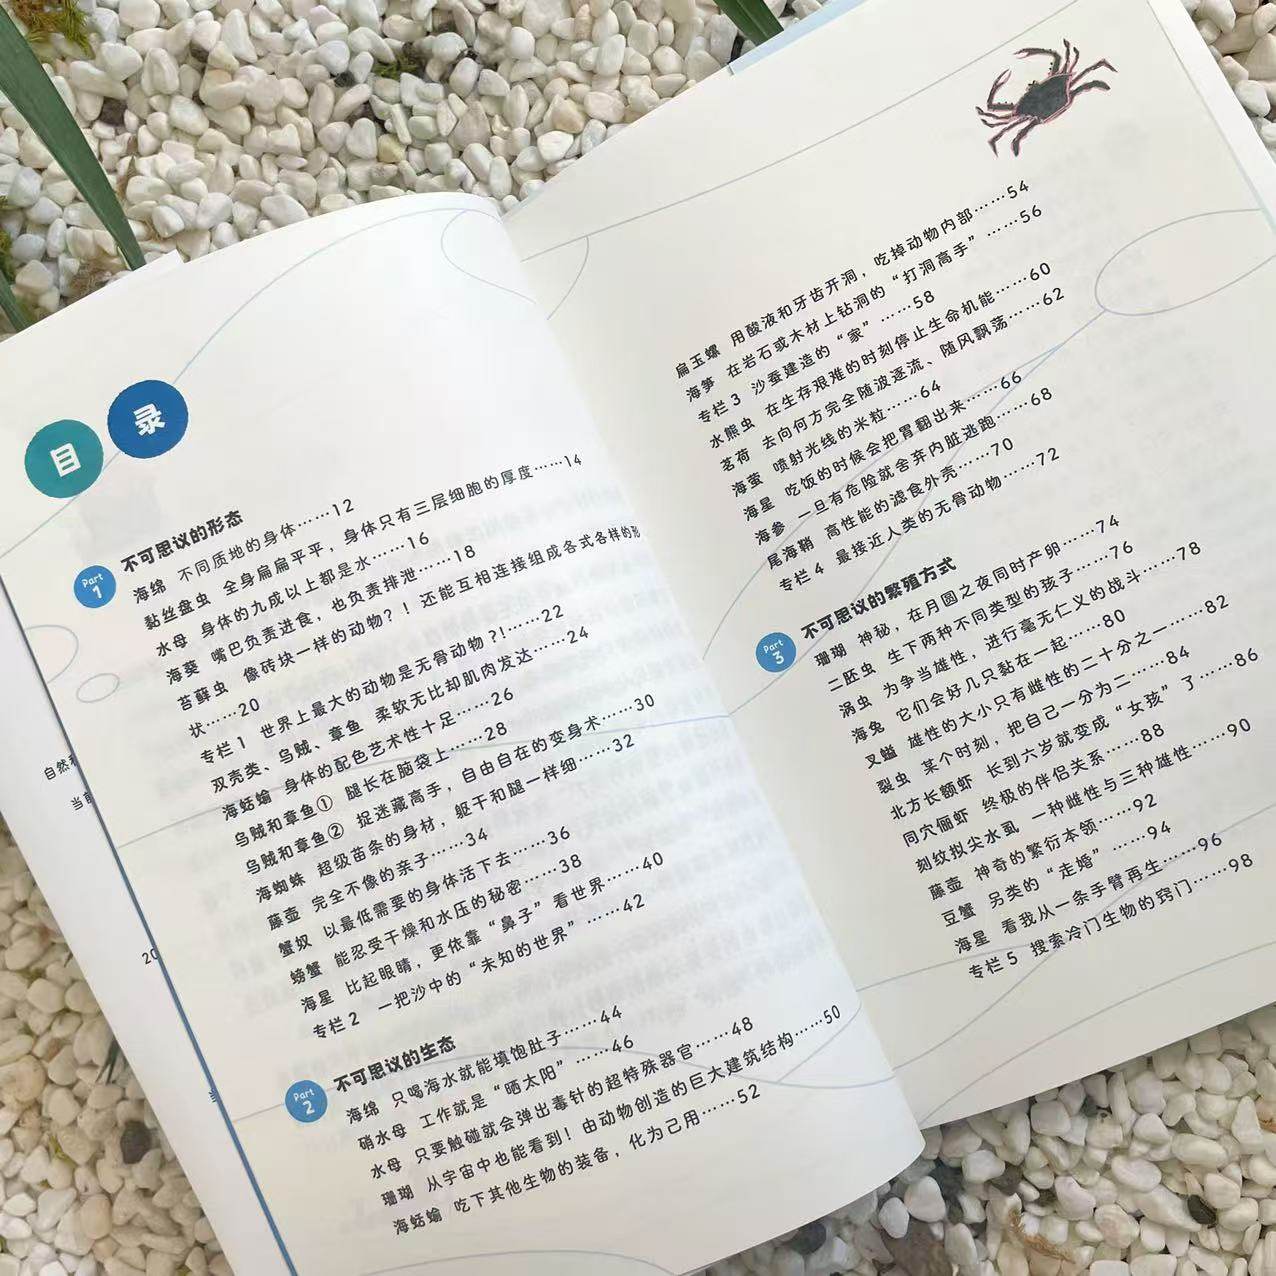 目录
Part 1
不可思议的形态
海绵 不同质地的身体……12
黏丝盘虫 全身扁扁平平，身体只有三层细胞的厚度……14
水母 身体的九成以上都是水……16
海葵 嘴巴负责进食，也负责排泄……18
苔藓虫 像砖块一样的动物？！还能互相连接组成各式各样的形
状……20
专栏1 世界上最大的动物是无骨动物？！……22
双壳类、乌贼、章鱼 柔软无比却肌肉发达……24
海蛞蝓 身体的配色艺术性十足……26
乌贼和章鱼① 腿长在脑袋上……28
乌贼和章鱼② 捉迷藏高手，自由自在的变身术……30
海蜘蛛 超级苗条的身材，躯干和腿一样细……32
藤壶 完全不像的亲子……34
蟹奴 以最低需要的身体活下去……36
螃蟹 能忍受干燥和水压的秘密……38
海星 比起眼睛，更依靠“鼻子”看世界……40
专栏2 一把沙中的“未知的世界”……42
Part 2
不可思议的生态
海绵 只喝海水就能填饱肚子……44
硝水母 工作就是“晒太阳”……46
水母 只要触碰就会弹出毒针的超特殊器官……48
珊瑚 从宇宙中也能看到！由动物创造的巨大建筑结构……50
海蛞蝓 吃下其他生物的装备，化为己用……52
扁玉螺 用酸液和牙齿开洞，吃掉动物内部……54
海笋 在岩石或木材上钻洞的“打洞高手”……56
专栏3 沙蚕建造的“家”……58
水熊虫 在生存艰难的时刻停止生命机能……60
茗荷 去向何方完全随波逐流、随风飘荡……62
海萤 喷射光线的米粒……64
海星 吃饭的时候会把胃翻出来……66
海参 一旦有危险就舍弃内脏逃跑……68
尾海鞘 高性能的滤食外壳……70
专栏4 最接近人类的无骨动物……72
Part 3
不可思议的繁殖方式
珊瑚 神秘，在月圆之夜同时产卵……74
二胚虫 生下两种不同类型的孩子……76
涡虫 为争当雄性，进行毫无仁义的战斗……78
海兔 它们会好几只黏在一起……80
叉螠 雄性的大小只有雌性的二十分之一……82
裂虫 某个时刻，把自己一分为二……84
北方长额虾 长到六岁就变成“女孩”了……86
同穴俪虾 终极的伴侣关系……88
刻纹拟尖水虱 一种雌性与三种雄性……90
藤壶 神奇的繁衍本领……92
豆蟹 另类的“走婚”……94
海星 看我从一条手臂再生……96
专栏5 搜索冷门生物的窍门……98
自然
20